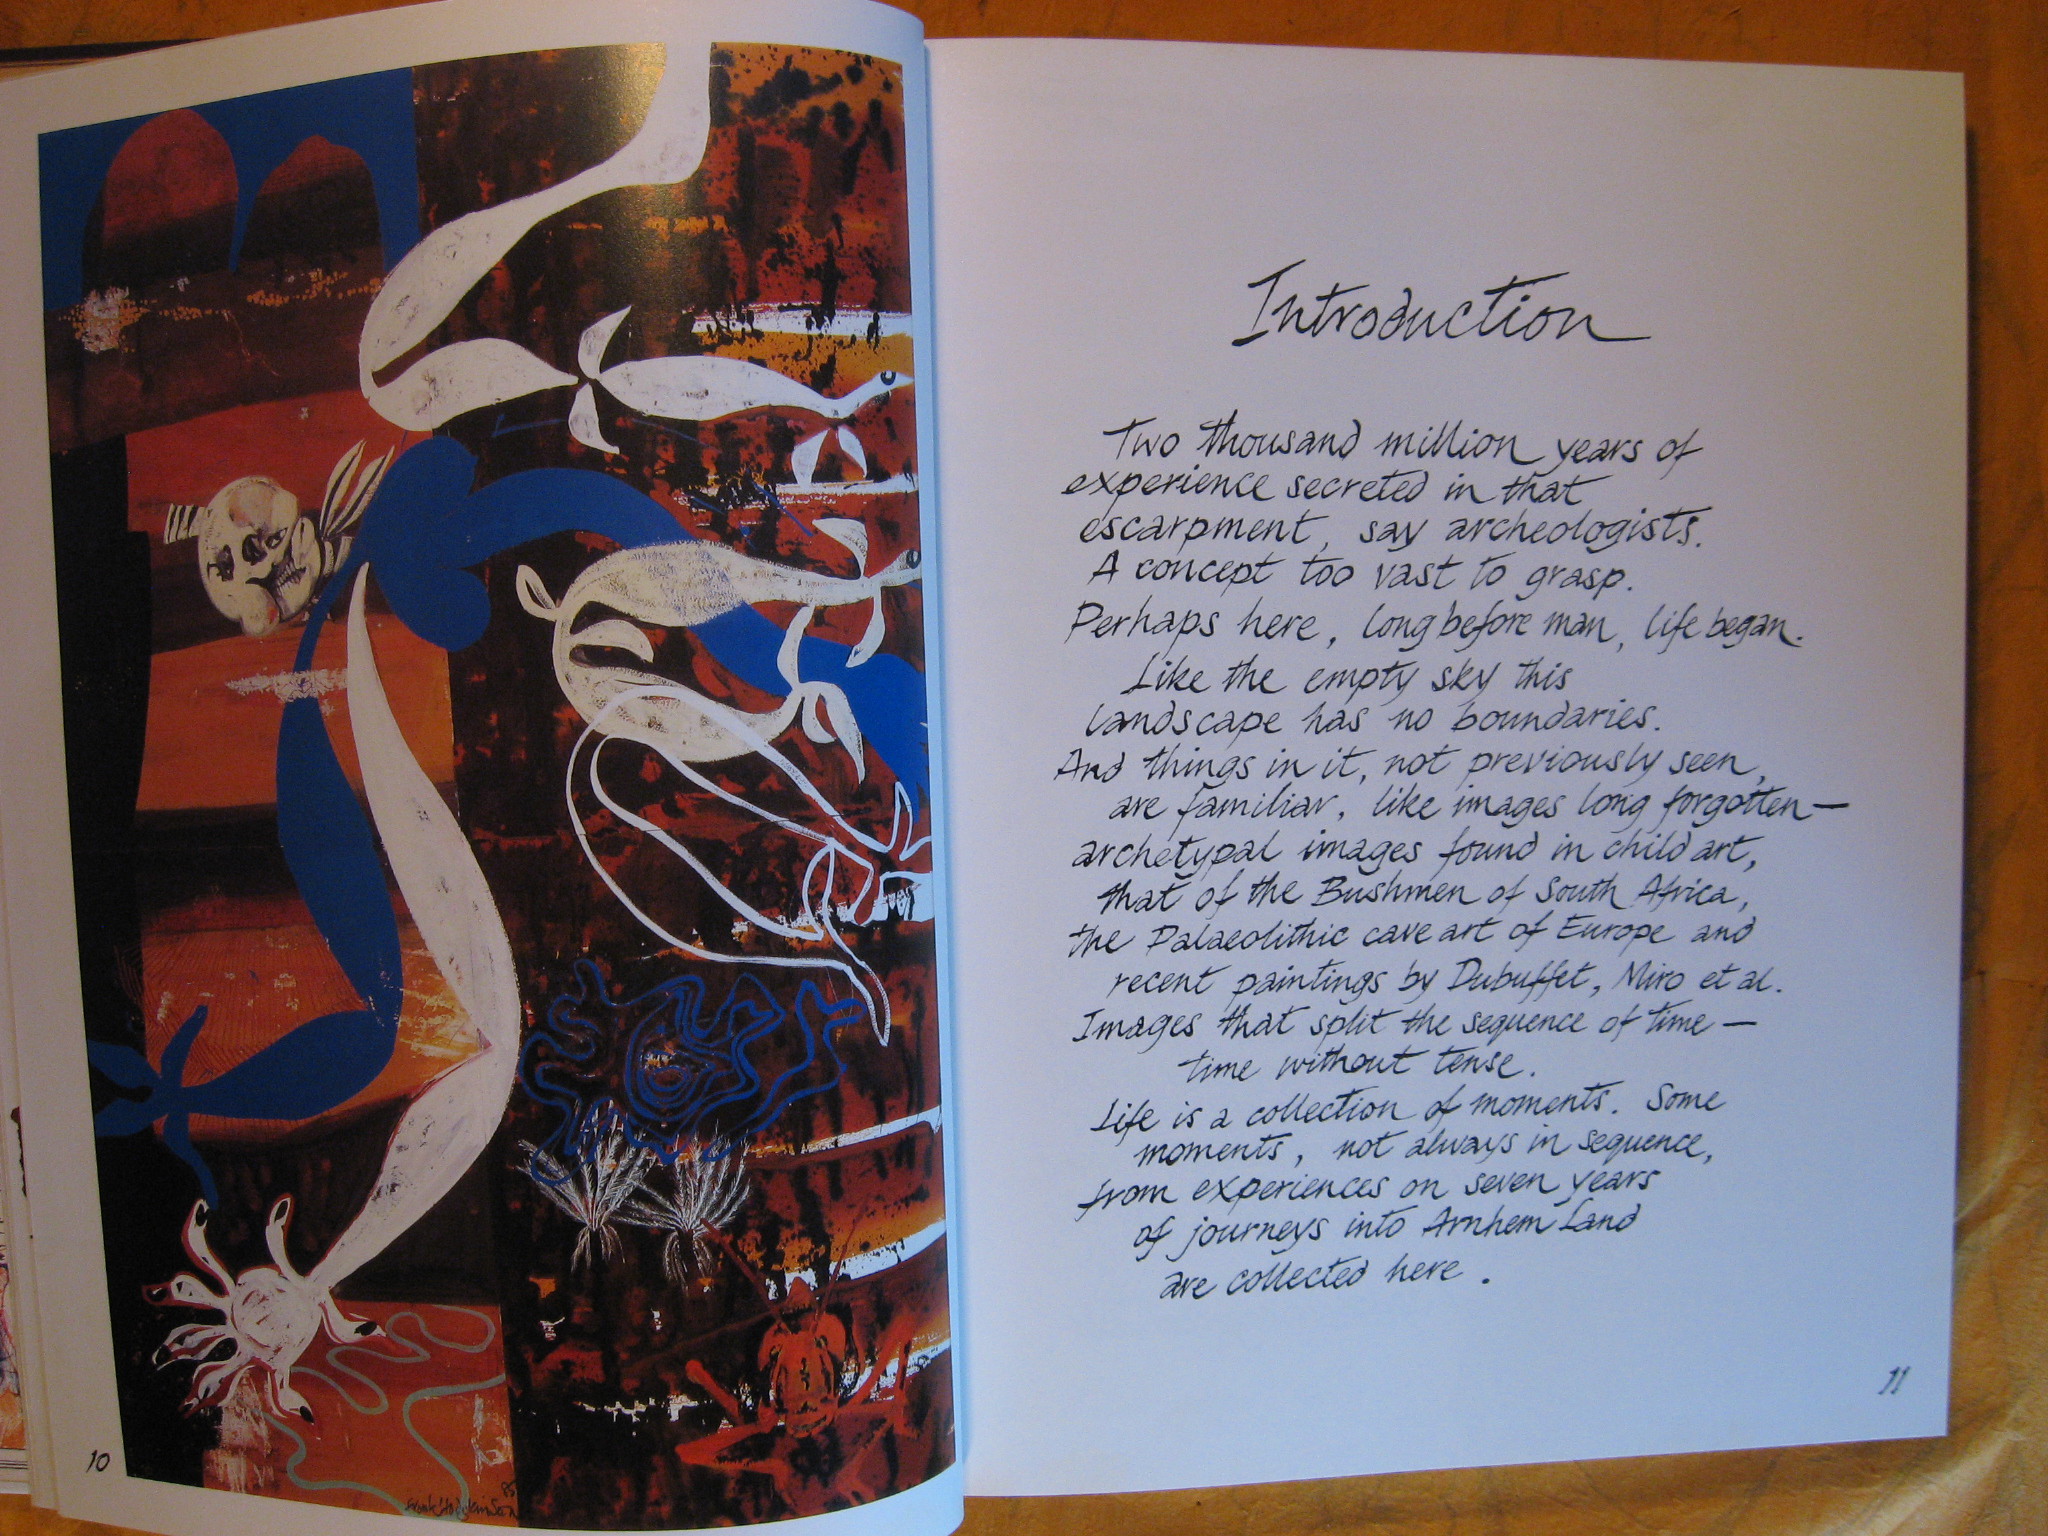 10
85
Frank Hodgkinson
Introduction
Two thousand million years of
experience secreted in that
escarpment, say archeologists.
A concept too vast to grasp.
Perhaps here, long before man, life began.
Like the empty sky this
landscape has no boundaries.
And things in it, not previously seen,
are familiar, like images long forgotten—
archetypal images found in child art,
that of the Bushmen of South Africa,
the Palaeolithic cave art of Europe and
recent paintings by Dubuffet, Miro et al.
Images that split the sequence of time—
time without tense.
Life is a collection of moments. Some
moments, not always in sequence,
from experiences on seven years
of journeys into Arnhem Land
are collected here.
11